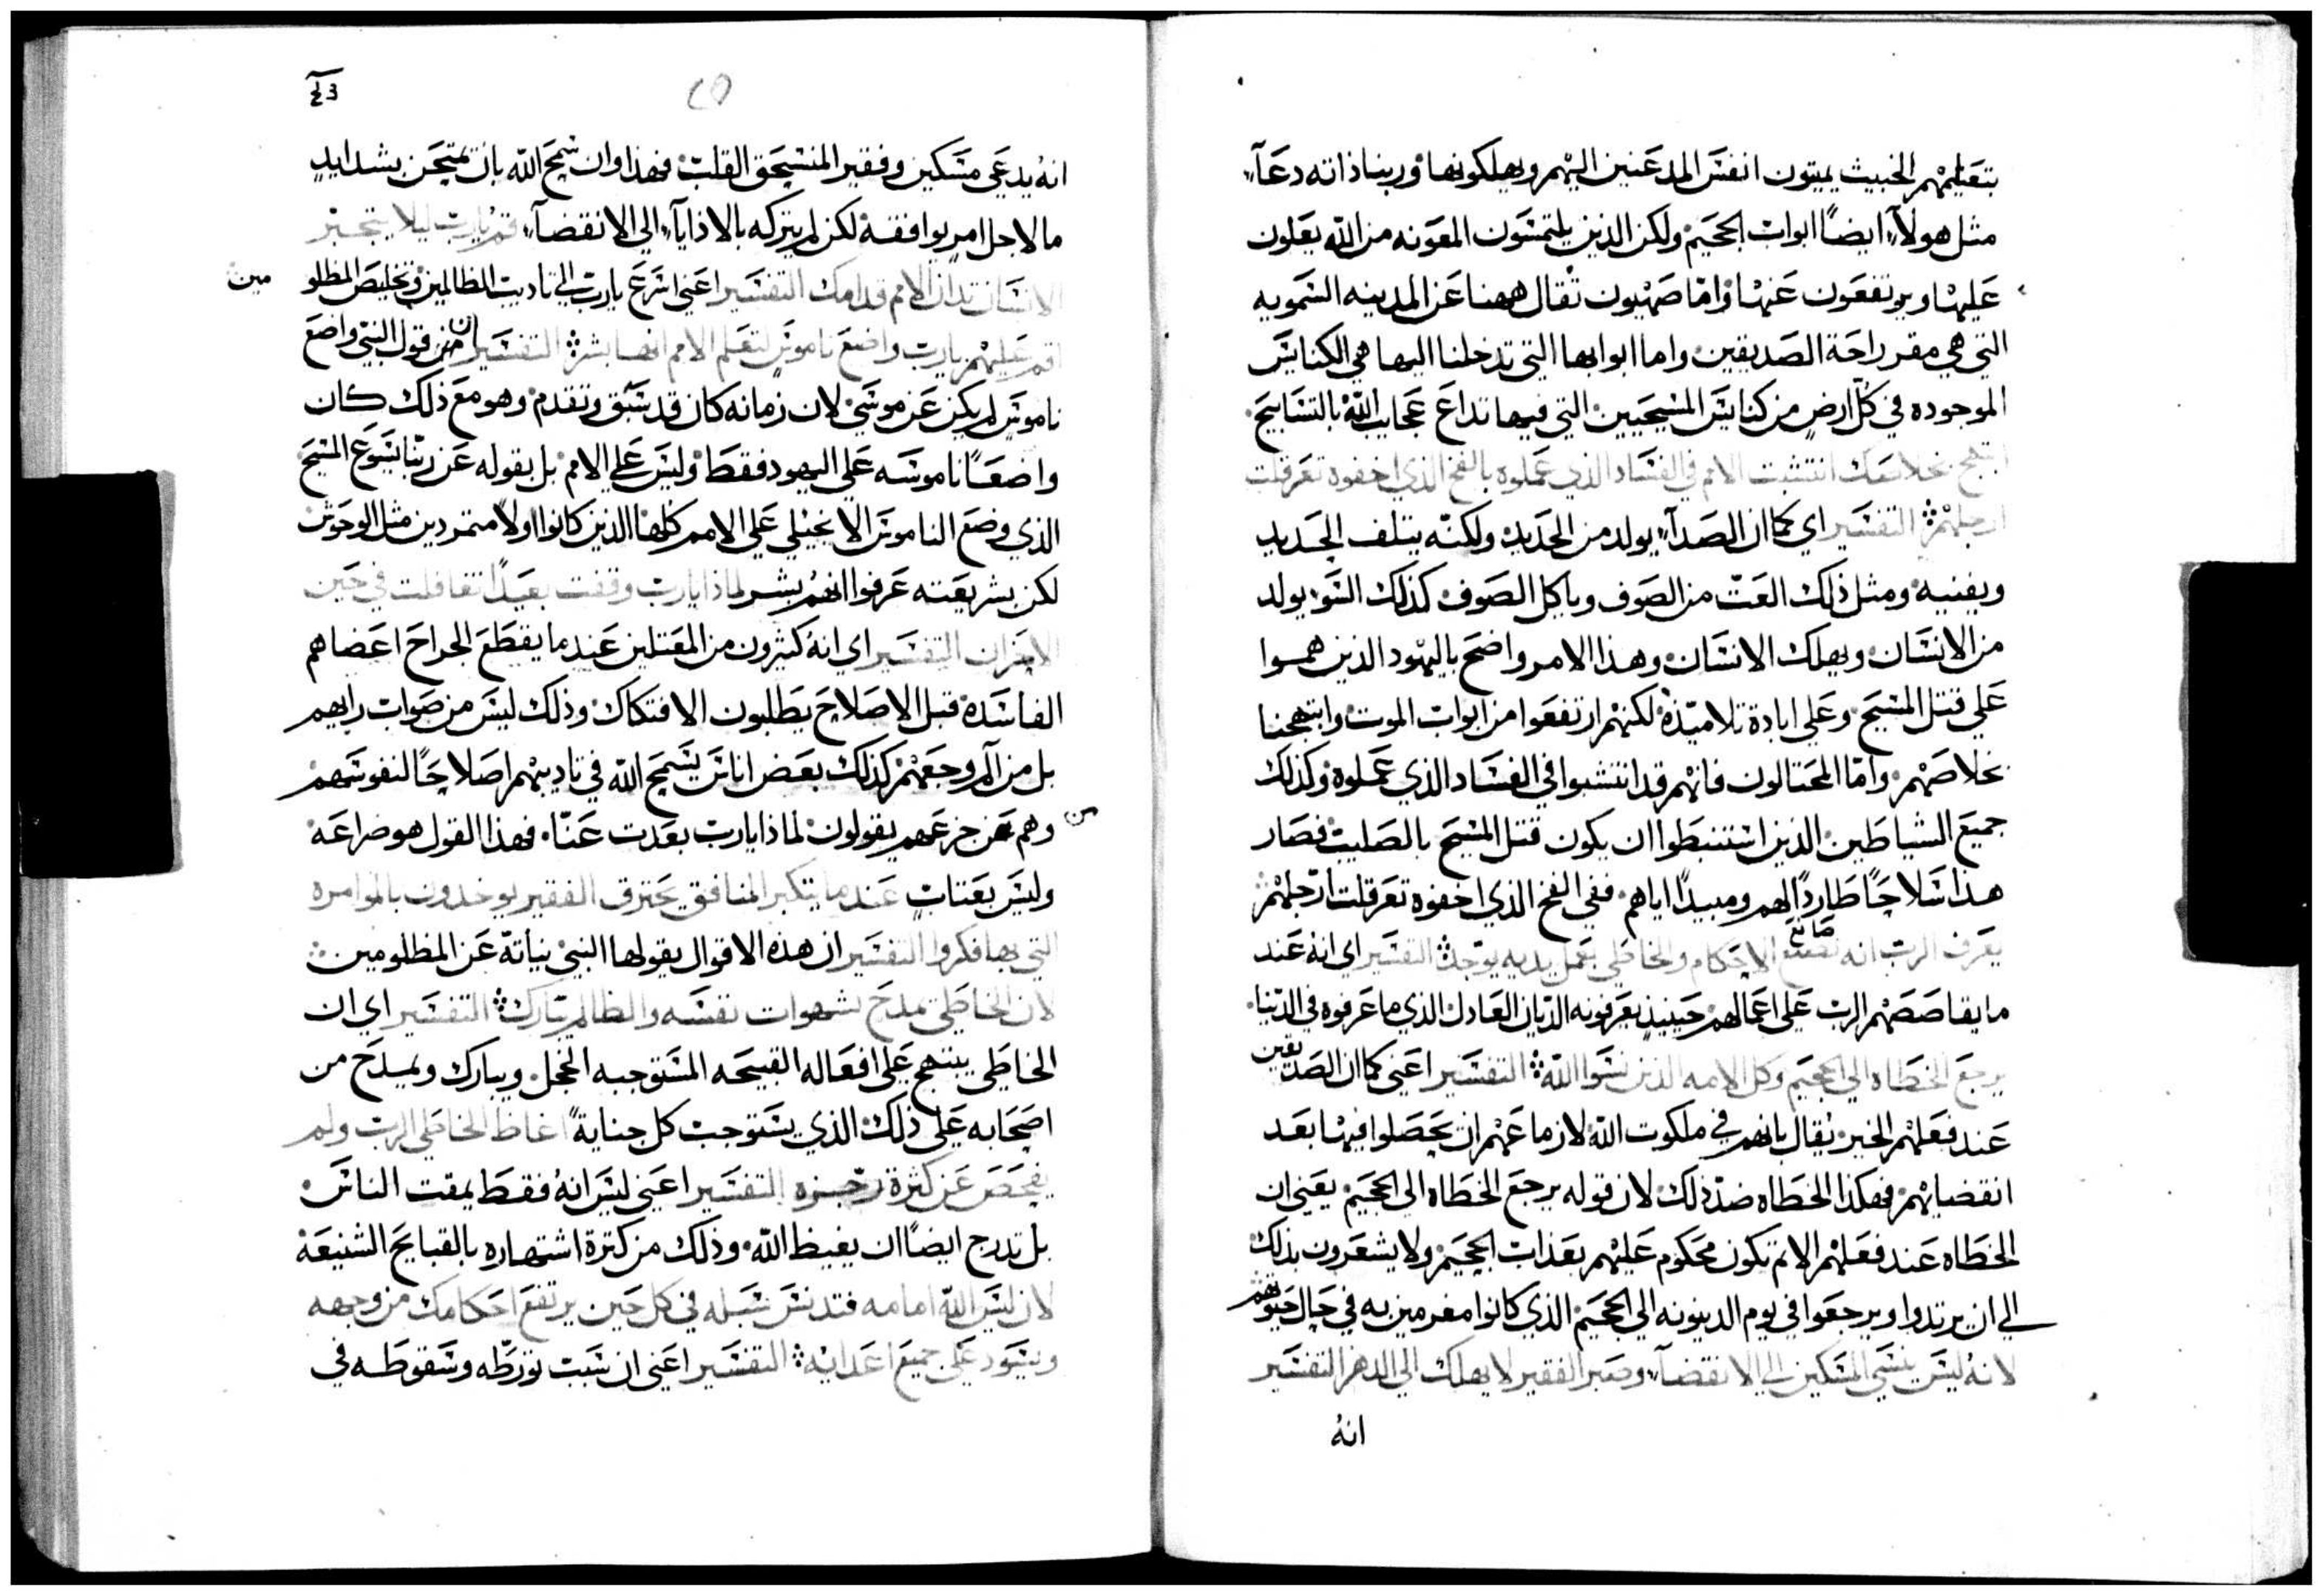 بتعليمهم الخبيث يميتون انفس المدعنين اليهم ويهلكونها وربنا ذاته دعآء
مثل هولآء ايضًا ابواب الجحيم ولكن الذين يلتمسون المعونه من الله يعلون
عليها ويرتفعون عنها وامّا صهيون تقال ههنا عن المدينه السمويه
التي هي مقر راحة الصديقين واما ابوابها التي تدخلنا اليها هي الكنايس
الموجوده في كل ارضٍ من كنايس المسيحيين التي فيها تداع عجايب الله بالتسابيح
ابتهج بخلاصك انتشبت الامم في الفساد الذي عملوه بالفخ الذي اخفوه تعرقلت
ارجلهم التفسير اي كما ان الصدآء يولد من الحديد ولكنّه يتلف الحديد
ويفنيه ومثل ذلك العتّ من الصوف وياكل الصوف كذلك السَو يولد
من الانسان ويهلك الانسان وهذا الامر واضح باليهود الذين هموا
على قتل المسيح وعلى ابادة تلاميذه لكنهم ارتفعوا من ابواب الموت وابتهجنا
بخلاصهم وامّا المحتالون فانهم قد انتشبوا في الفساد الذي عملوه وكذلك
جميع الشياطين الذين استنبطوا ان يكون قتل المسيح بالصليب فصار
هذا سلاحًا طاردًا لهم ومبيدًا اياهم ففي الفخ الذي اخفوه تعرقلت ارجلهم
يعرف الرب انه صانع الاحكام والخاطي بعمل يديه يوجد التفسير اي انه عند
ما يقاصصهم الرب على اعمالهم حينيذٍ يعرفونه الديّان العادل الذي ما عرفوه في الدنيا
يرجع الخطاه الى الجحيم وكل الامه الذين نسوا الله التفسير اعني كما ان الصديقين
عند فعلهم الخير يُقال بانهم في ملكوت الله لازما عنهم ان يحصلوا فيها بعد
انقضايهم فهكذا الخطاه ضدّ ذلك لان قوله يرجع الخطاه الى الجحيم يعني ان
الخطاه عند فعلهم الاثم تكون محكوم عليهم بعذاب الجحيم ولا يشعرون بذلك
الي ان يرتدوا ويرجعوا في يوم الدينونه الى الجحيم الذي كانوا مغرمين به في حال حيوتهم
لانهُ ليس ينسى المسكين الي الانقضآء وصبر الفقير لا يهلك الى الدهر التفسير
انهُ
انهُ يدعي مسكين وفقير المنسحق القلب فهذا وان سمح الله بان يمتحن بشدايدٍ
ما لاجل امرٍ يوافقه لكن لم يتركه بالاذايآء الي الانقضآء قم يارب ليلا يتجبّر
الانسان تدان الامم قدامك التفسير اعني اسرع يارب الي تاديب الظالمين وتخليص المظلو
مين
اقم عليهم يارب واضع ناموس لتعلم الامم انها بشر التفسير ان قول النبي واضع
ناموس لم يكن عن موسى لان زمانه كان قد سبق وتقدم وهو مع ذلك كان
واضعًا ناموسه على اليهود فقط وليس علي الامم بل بقوله عن ربّنا يسوع المسيح
الذي وضع الناموس الانجيلي على الامم كلها الذين كانوا اولاً متمردين مثل الوحوش
لكن بشريعته عرفوا انهم بشر لماذا يارب وقفت بعيدًا تغافلت في حين
الاحزان التفسير اي انهُ كثيرون من المعتلين عند ما يقطع الجراح اعضاهم
الفاسده قبل الاصلاح يطلبون الافتكاك وذلك ليس من صواب رايهم
بل من آلم وجعهم كذلك بعض اناس يسمح الله في تاديبهم اصلاحًا لنفوسهم
من
وهم جزعهم يقولون لماذا يارب بعدت عنّا فهذا القول هو ضراعة
وليس بعتابٍ عند ما يتكبر المنافق يحترق الفقير يوخدون بالموامره
التي بها فكروا التفسير ان هذه الاقوال يقولها النبي نيأبةً عن المظلومين
لان الخاطي يمدح بشهوات نفسه والظالم يبارك التفسير اي ان
الخاطي يبتهج على افعاله القبيحه المستوجبه الخجل ويبارك ويمدح من
اصحابه على ذلك الذي يستوجب كل جنايةً اغاظ الخاطي الرب ولم
يفحص عن كثرة رجزه التفسير اعني ليس انهُ فقط يمقت الناس
بل تدرج ايضًا ان يغيظ الله وذلك من كثرة اشتهاره بالقبايح الشنيعه
لان ليس الله امامه فتدنس سبله في كل حين يرتفع احكامك من وجهه
ويسود على جميع اعدايه التفسير اعني ان سبب تورطّه وسقوطه في